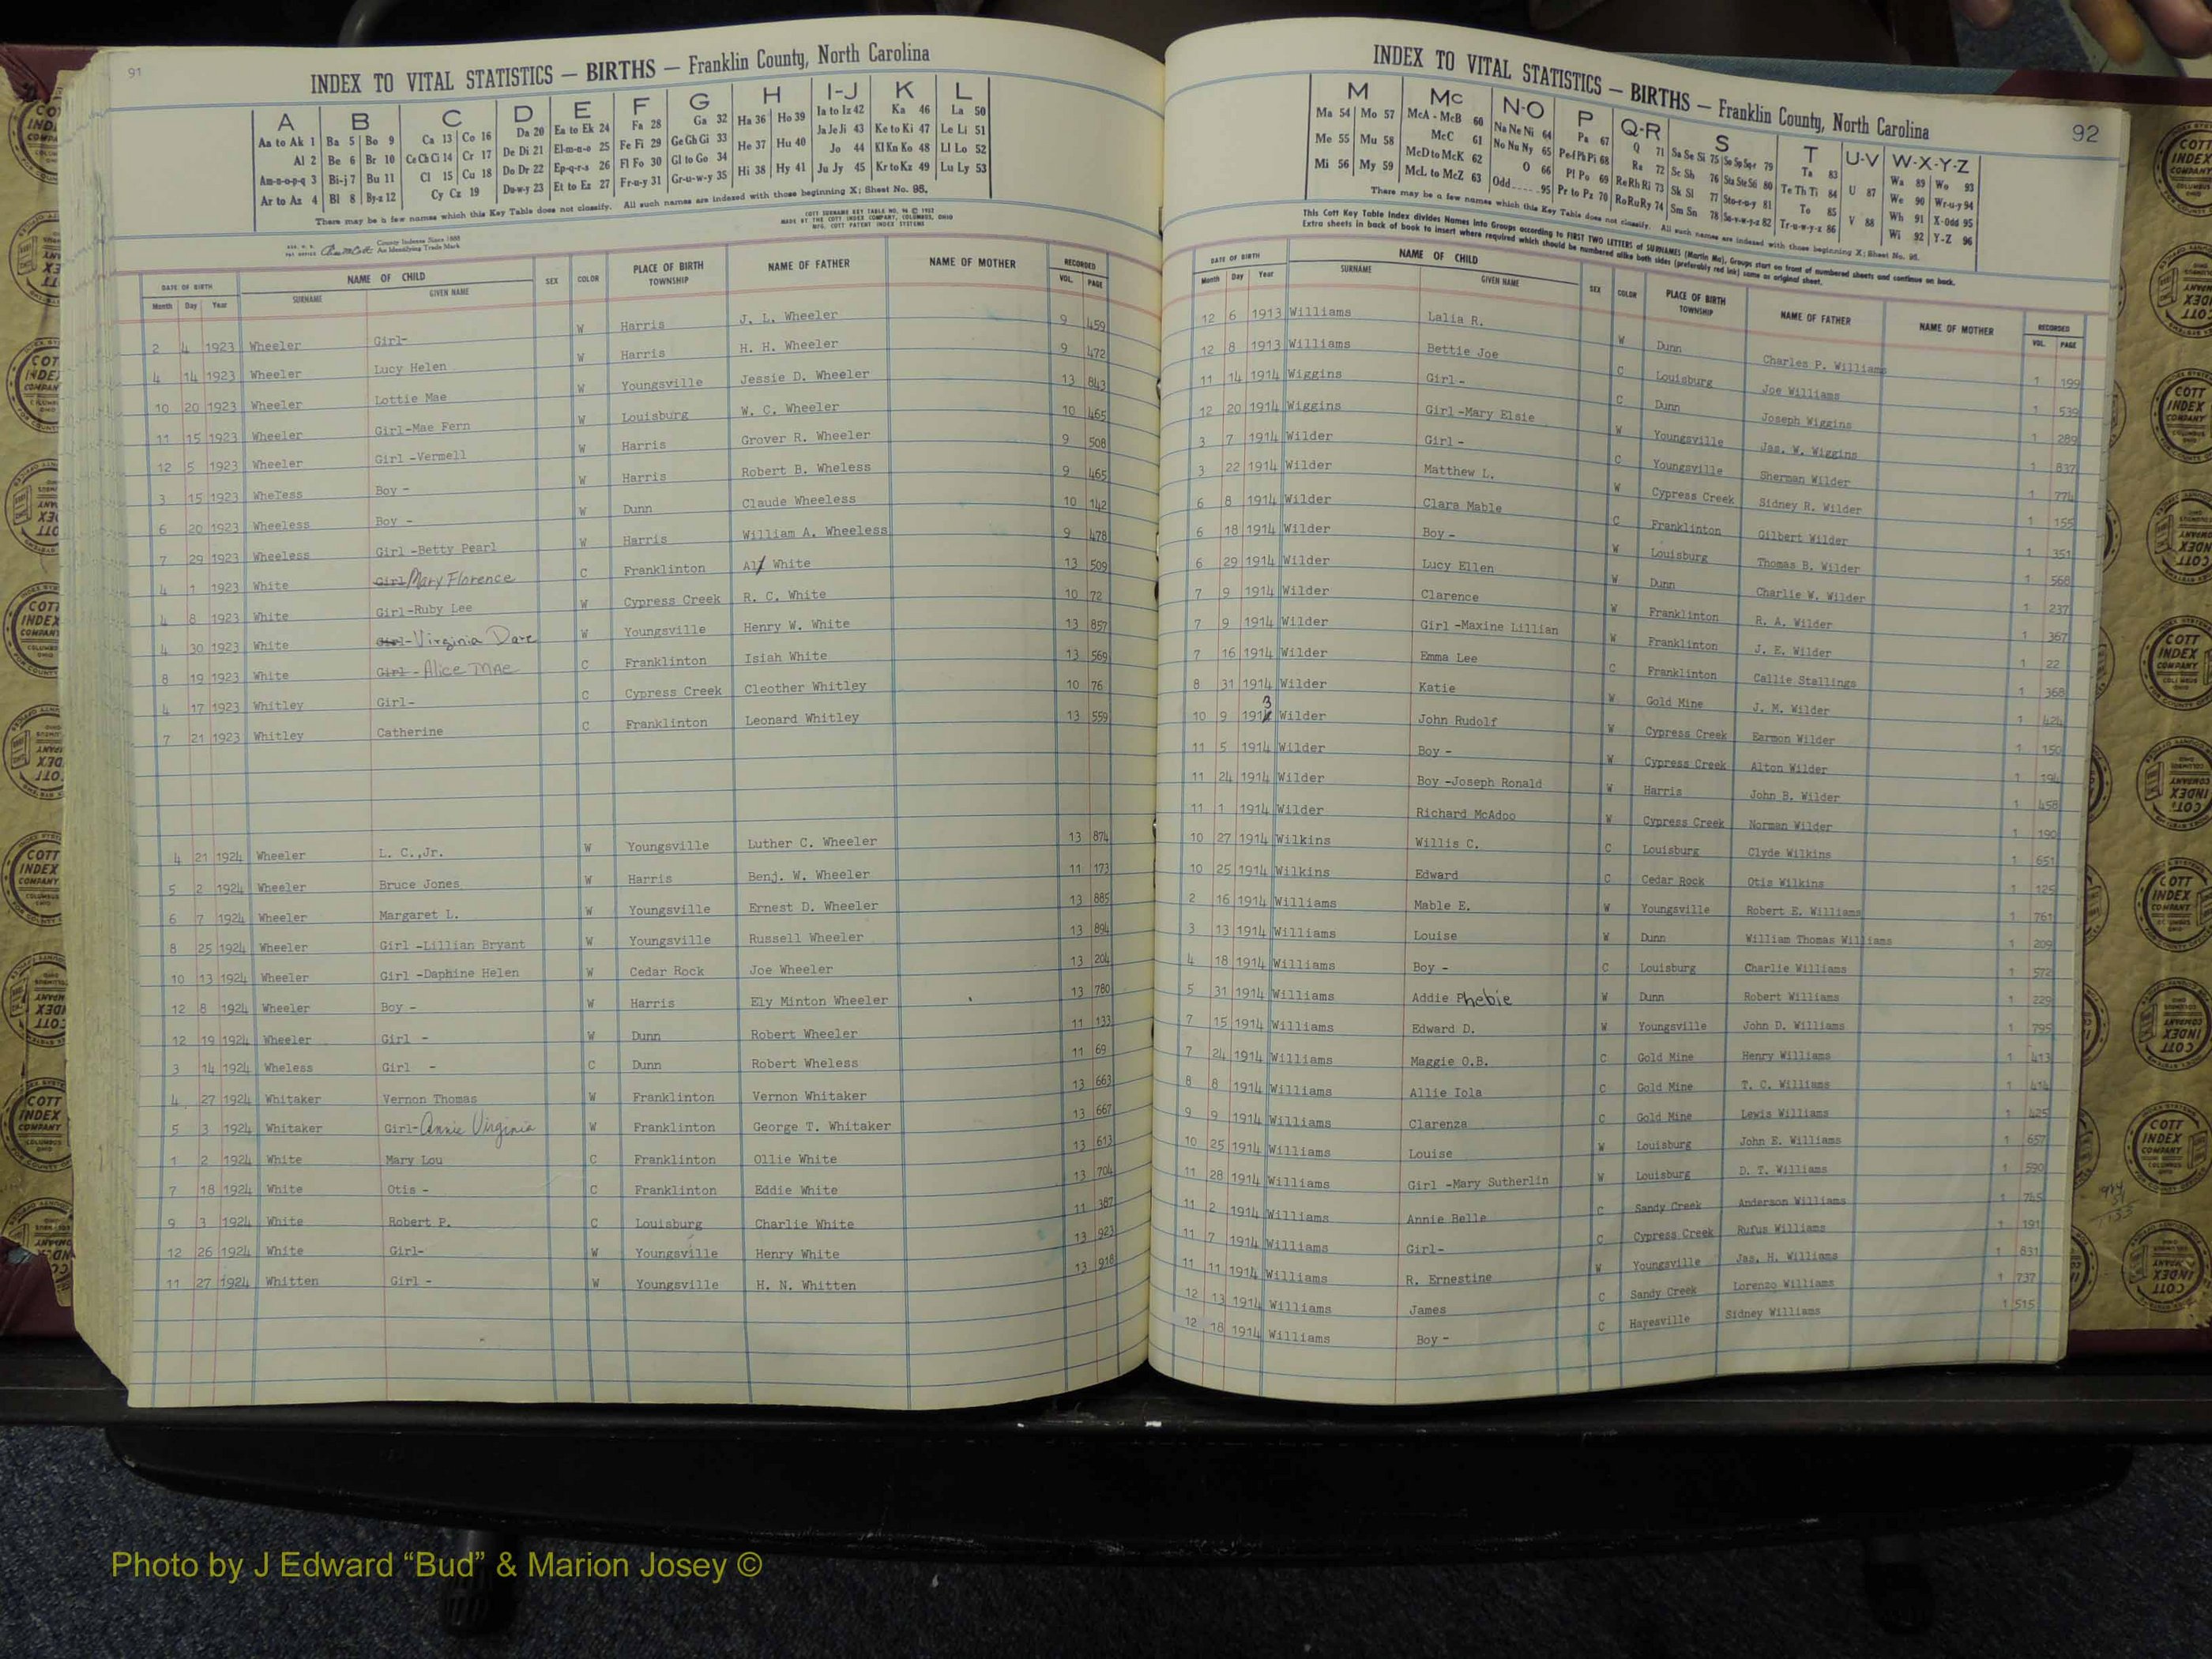 91
INDEX TO VITAL STATISTICS — BIRTHS — Franklin County, North Carolina
A B C D E F G H I-J K L
Aa to Ak 1 Ba 5 Bo 9 Ca 13 Co 16 Da 20 Ea to Ek 24 Fa 28 Ga 32 Ha 36 Ho 39 Ia to Iz 42 Ka 46 La 50
Al 2 Be 6 Br 10 Ce Ch Ci 14 Cr 17 De Di 21 El-m-n-o 25 Fe Fi 29 Ge Gh Gi 33 He 37 Hu 40 Ja Je Ji 43 Ke to Ki 47 Le Li 51
Am-n-o-p-q 3 Bi-j 7 Bu 11 Cl 15 Cu 18 Do Dr 22 Ep-q-r-s 26 Fl Fo 30 Gl to Go 34 Hi 38 Hy 41 Jo 44 Kl Kn Ko 48 Ll Lo 52
Ar to Az 4 Bl 8 By-z 12 Cy Cz 19 Du-w-y 23 Et to Ez 27 Fr-u-y 31 Gr-u-w-y 35 Ju Jy 45 Kr to Kz 49 Lu Ly 53
There may be a few names which this Key Table does not classify. All such names are indexed with those beginning X; Sheet No. 95.
COTT SURNAME KEY TABLE NO. 96 © 1952
MADE BY THE COTT INDEX COMPANY, COLUMBUS, OHIO
MFG. COTT PATENT INDEX SYSTEMS
County Indexes Since 1888
An Identifying Trade Mark
DATE OF BIRTH NAME OF CHILD SEX COLOR PLACE OF BIRTH TOWNSHIP NAME OF FATHER NAME OF MOTHER RECORDED
Month Day Year SURNAME GIVEN NAME VOL. PAGE
2 4 1923 Wheeler Girl- W Harris J. L. Wheeler 9 459
4 14 1923 Wheeler Lucy Helen W Harris H. H. Wheeler 9 472
10 20 1923 Wheeler Lottie Mae W Youngsville Jessie D. Wheeler 13 843
11 15 1923 Wheeler Girl-Mae Fern W Louisburg W. C. Wheeler 10 465
12 5 1923 Wheeler Girl -Vermell W Harris Grover R. Wheeler 9 508
3 15 1923 Wheless Boy - W Harris Robert B. Wheless 9 465
6 20 1923 Wheeless Boy - W Dunn Claude Wheeless 10 142
7 29 1923 Wheeless Girl -Betty Pearl W Harris William A. Wheeless 9 478
4 1 1923 White Girl Mary Florence C Franklinton Alf White 13 509
4 8 1923 White Girl-Ruby Lee W Cypress Creek R. C. White 10 72
4 30 1923 White Girl-Virginia Dare W Youngsville Henry W. White 13 857
8 19 1923 White Girl - Alice Mae C Franklinton Isiah White 13 569
4 17 1923 Whitley Girl- C Cypress Creek Cleother Whitley 10 76
7 21 1923 Whitley Catherine C Franklinton Leonard Whitley 13 559
4 21 1924 Wheeler L. C.,Jr. W Youngsville Luther C. Wheeler 13 874
5 2 1924 Wheeler Bruce Jones W Harris Benj. W. Wheeler 11 173
6 7 1924 Wheeler Margaret L. W Youngsville Ernest D. Wheeler 13 885
8 25 1924 Wheeler Girl -Lillian Bryant W Youngsville Russell Wheeler 13 894
10 13 1924 Wheeler Girl -Daphine Helen W Cedar Rock Joe Wheeler 13 204
12 8 1924 Wheeler Boy - W Harris Ely Minton Wheeler 13 780
12 19 1924 Wheeler Girl - W Dunn Robert Wheeler 11 133
3 14 1924 Wheless Girl - C Dunn Robert Wheless 11 69
4 27 1924 Whitaker Vernon Thomas W Franklinton Vernon Whitaker 13 663
5 3 1924 Whitaker Girl-Annie Virginia W Franklinton George T. Whitaker 13 667
1 2 1924 White Mary Lou C Franklinton Ollie White 13 613
7 18 1924 White Otis - C Franklinton Eddie White 13 704
9 3 1924 White Robert P. C Louisburg Charlie White 11 387
12 26 1924 White Girl- W Youngsville Henry White 13 923
11 27 1924 Whitten Girl - W Youngsville H. N. Whitten 13 918
INDEX TO VITAL STATISTICS — BIRTHS — Franklin County, North Carolina
92
M Mc N-O P Q-R S T U-V W-X-Y-Z
Ma 54 Mo 57 McA - McB 60 Na Ne Ni 64 Pa 67 Q 71 Sa Se Si 75 So Sp Sq-r 79 Ta 83 U 87 Wa 89 Wo 93
Me 55 Mu 58 McC 61 No Nu Ny 65 Pe-f Ph Pi 68 Ra 72 Sc Sh 76 Sta Ste Sti 80 Te Th Ti 84 V 88 We 90 Wr-u-y 94
Mi 56 My 59 McD to McK 62 O 66 Pl Po 69 Re Rh Ri 73 Sk Sl 77 Sto-r-o-y 81 To 85 Wh 91 X-Odd 95
McL to McZ 63 Odd 95 Pr to Pz 70 Ro Ru Ry 74 Sm Sn 78 Su-v-w-y-z 82 Tr-u-w-y-z 86 Wi 92 Y-Z 96
There may be a few names which this Key Table does not classify. All such names are indexed with those beginning X; Sheet No. 95.
This Cott Key Table Index divides Names into Groups according to FIRST TWO LETTERS of SURNAMES (Martin Ma), Groups start on front of numbered sheets and continue on back.
Extra sheets in back of book to insert where required which should be numbered alike both sides (preferably red ink) same as original sheet.
DATE OF BIRTH NAME OF CHILD SEX COLOR PLACE OF BIRTH TOWNSHIP NAME OF FATHER NAME OF MOTHER RECORDED
Month Day Year SURNAME GIVEN NAME VOL. PAGE
12 6 1913 Williams Lalia R. W Dunn Charles P. Williams 1 199
12 8 1913 Williams Bettie Joe C Louisburg Joe Williams 1 539
11 14 1914 Wiggins Girl - C Dunn Joseph Wiggins 1 289
12 20 1914 Wiggins Girl -Mary Elsie W Youngsville Jas. W. Wiggins 1 837
3 7 1914 Wilder Girl - C Youngsville Sherman Wilder 1 774
3 22 1914 Wilder Matthew L. W Cypress Creek Sidney R. Wilder 1 155
6 8 1914 Wilder Clara Mable C Franklinton Gilbert Wilder 1 351
6 18 1914 Wilder Boy - W Louisburg Thomas B. Wilder 1 568
6 29 1914 Wilder Lucy Ellen W Dunn Charlie W. Wilder 1 237
7 9 1914 Wilder Clarence W Franklinton R. A. Wilder 1 367
7 9 1914 Wilder Girl -Maxine Lillian W Franklinton J. E. Wilder 1 22
7 16 1914 Wilder Emma Lee C Franklinton Callie Stallings 1 368
8 31 1914 Wilder Katie W Gold Mine J. M. Wilder 1 424
10 9 1913 Wilder John Rudolf W Cypress Creek Earmon Wilder 1 150
11 5 1914 Wilder Boy - W Cypress Creek Alton Wilder 1 194
11 24 1914 Wilder Boy -Joseph Ronald W Harris John B. Wilder 1 458
11 1 1914 Wilder Richard McAdoo W Cypress Creek Norman Wilder 1 190
10 27 1914 Wilkins Willis C. C Louisburg Clyde Wilkins 1 651
10 25 1914 Wilkins Edward C Cedar Rock Otis Wilkins 1 125
2 16 1914 Williams Mable E. W Youngsville Robert E. Williams 1 761
3 13 1914 Williams Louise W Dunn William Thomas Williams 1 209
4 18 1914 Williams Boy - C Louisburg Charlie Williams 1 572
5 31 1914 Williams Addie Phebie W Dunn Robert Williams 1 229
7 15 1914 Williams Edward D. W Youngsville John D. Williams 1 795
7 24 1914 Williams Maggie O.B. C Gold Mine Henry Williams 1 413
8 8 1914 Williams Allie Iola C Gold Mine T. C. Williams 1 414
9 9 1914 Williams Clarenza C Gold Mine Lewis Williams 1 425
10 25 1914 Williams Louise W Louisburg John E. Williams 1 657
11 28 1914 Williams Girl -Mary Sutherlin W Louisburg D. T. Williams 1 590
11 2 1914 Williams Annie Belle C Sandy Creek Anderson Williams 1 745
11 7 1914 Williams Girl- C Cypress Creek Rufus Williams 1 191
11 11 1914 Williams R. Ernestine W Youngsville Jas. H. Williams 1 831
12 13 1914 Williams James C Sandy Creek Lorenzo Williams 1 737
12 18 1914 Williams Boy - C Hayesville Sidney Williams 1 515
COTT INDEX COMPANY COLUMBUS OHIO
Photo by J Edward “Bud” & Marion Josey ©